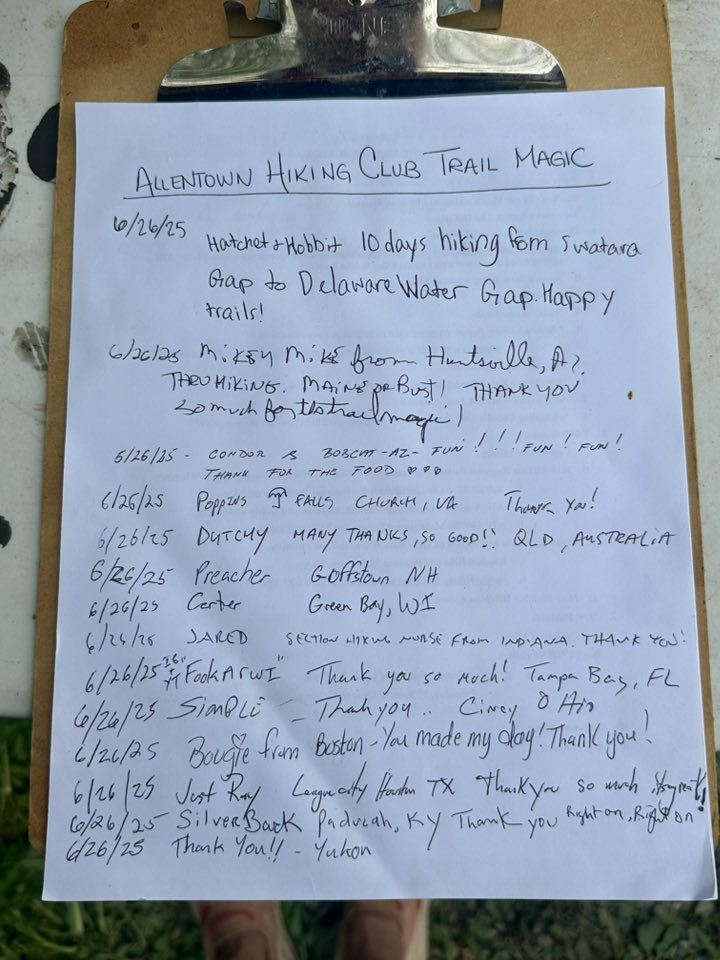 ALLENTOWN HIKING CLUB TRAIL MAGIC
6/26/25 Hatchet & Hobbit 10 days hiking from Swatara
Gap to Delaware Water Gap. Happy
trails!
6/26/25 Mikey Mike from Huntsville,
THRU HIKING. MAINE OR BUST! THANK YOU
So much for this trail magic!
6/26/25 - CONDOR & BOBCAT - AZ - FUN!!!! FUN! FUN!
THANK FOR THE FOOD ♡♡♡
6/26/25 POPPINS ☂ FALLS CHURCH, VA Thank You!
6/26/25 DUTCHY MANY THANKS, SO GOOD!! QLD, AUSTRALIA
6/26/25 Preacher Goffstown NH
6/26/25 Carter Green Bay, WI
6/26/25 JARED SECTION HIKING NURSE FROM INDIANA. THANK YOU!
6/26/25 "FOOKARWI" Thank you so much! Tampa Bay, FL
6/26/25 SIMPLE - Thank you.. Cincy Ohio
6/26/25 Bougie from Boston - You made my day! Thank you!
6/26/25 Just Ray League city Houston TX Thank you so much,
6/26/25 SilverBack Paducah, KY Thank you Right on, Right on!
6/26/25 Thank You!! - Yukon